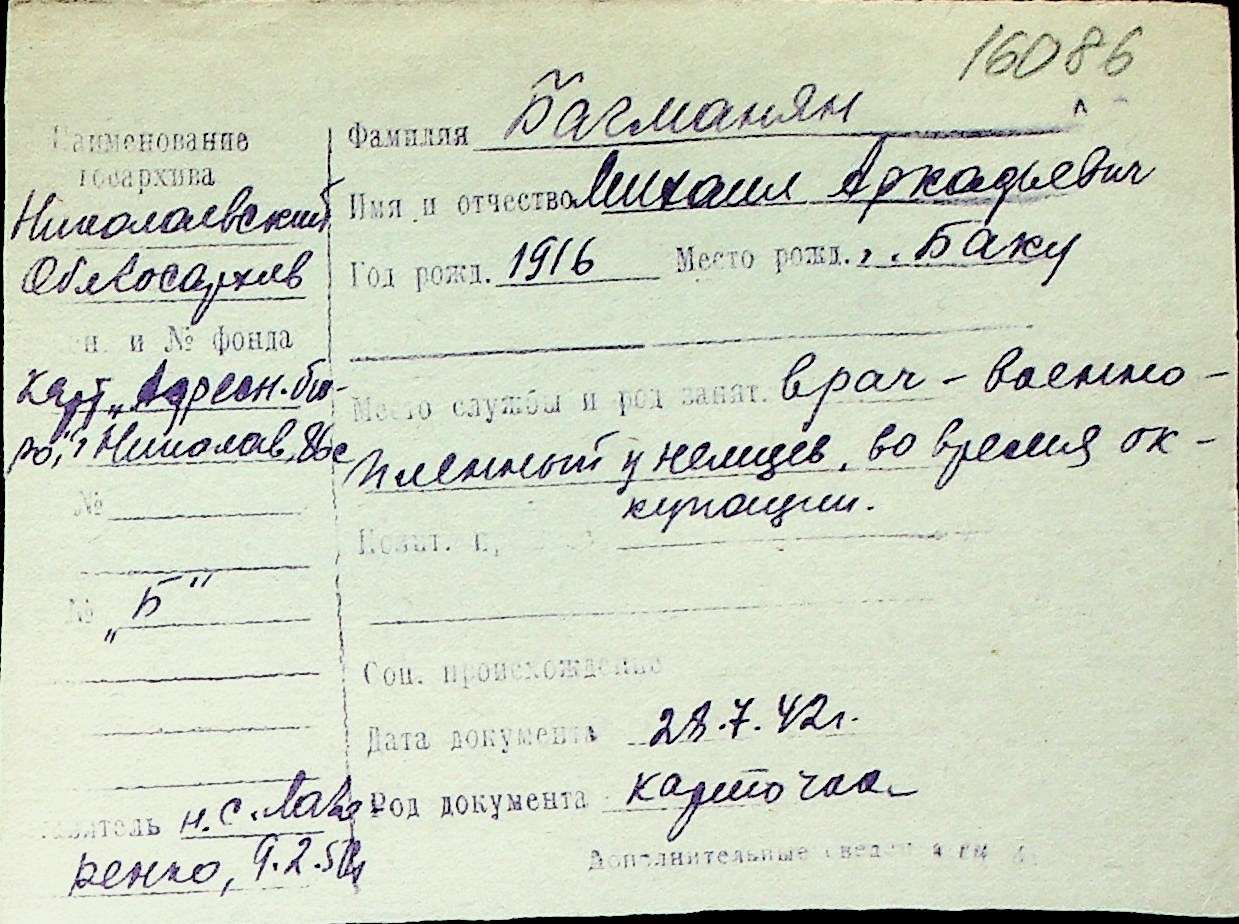 16086
Наименование
госархива
Николаевский
Облгосархив
и № фонда
карт. „Адресн. бю-
ро,"
№
№ „Б"
н.с. Лав-
ренко, 9.2.5
Фамилия Багманян
Имя и отчество Михаил Аркадьевич
Год рожд. 1916 Место рожд. г. Баку
Место службы и род занят. врач - военно-
пленный у немцев, во время ок-
купации.
Соц. происхождение
Дата документа 28.7.42г.
Род документа карточка
Дополнительные сведения